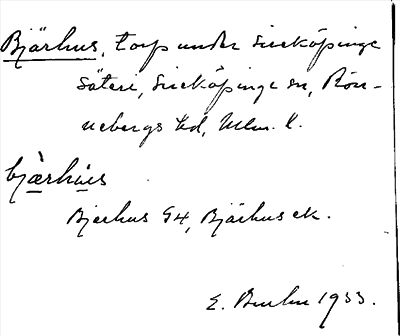 Bjärhus, torp under Sireköpinge
säteri, Sireköpinge sn, Rön-
nebergs hd, Mlm. l.
bjæ̀rhús
Bjerhus G4, Bjärhus ek.
E. 1933.